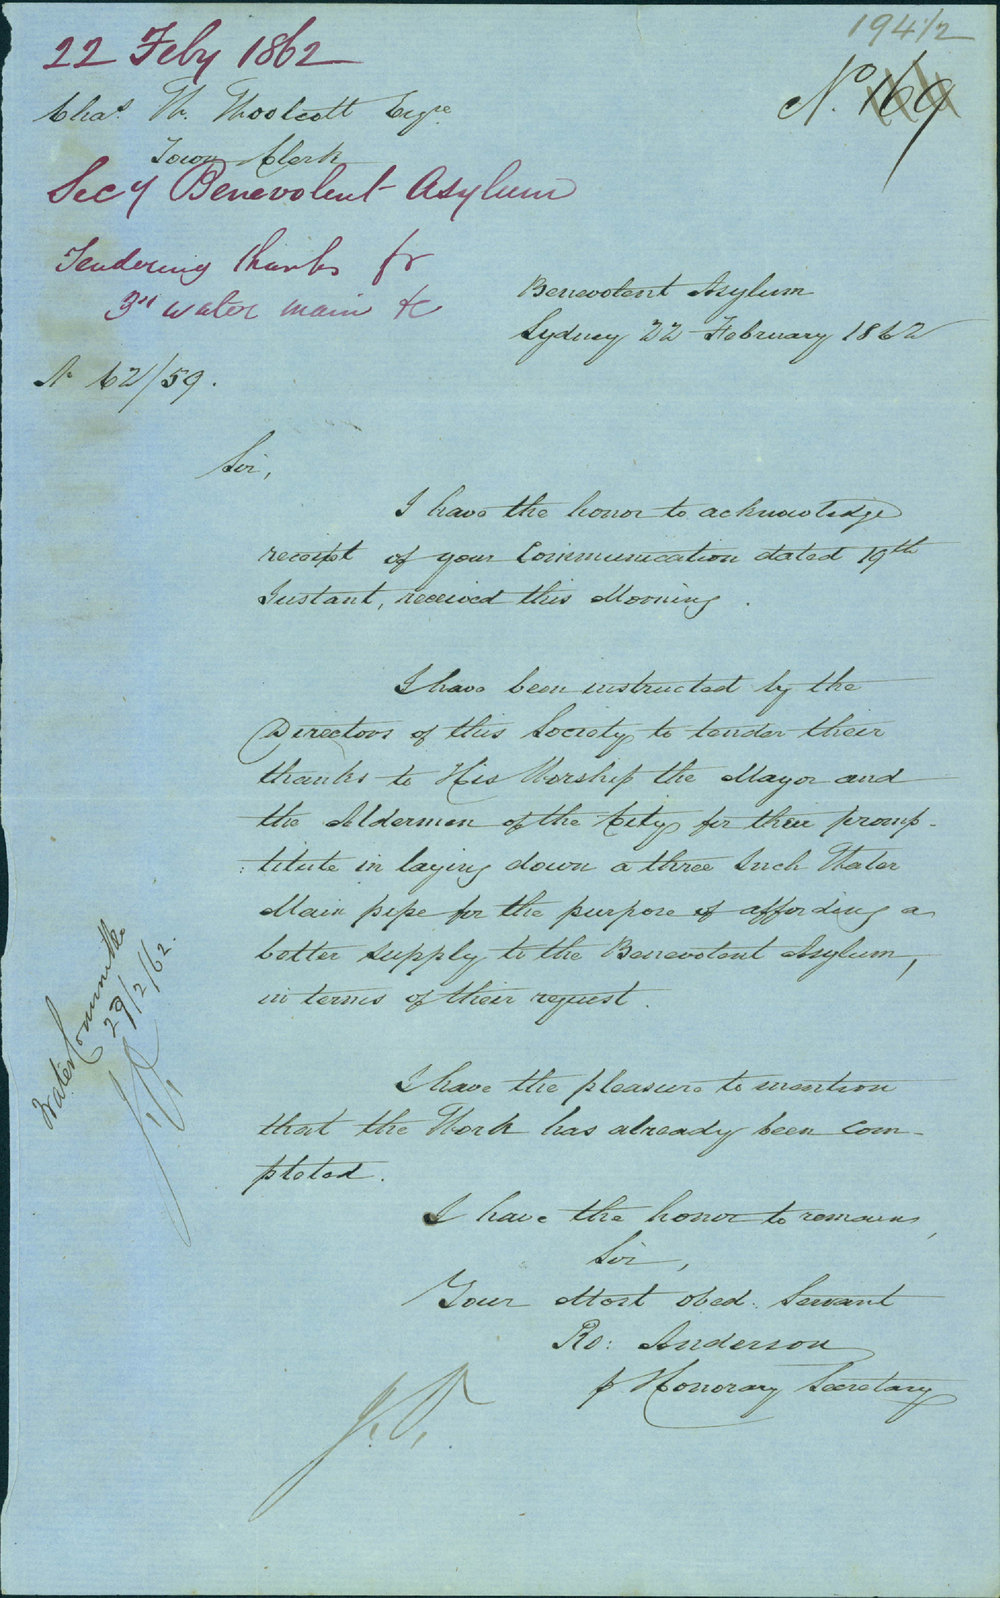 194 1/2
22 Feby 1862
No. 169
Chas. H. Woolcott Esqre
Town Clerk
Secy Benevolent Asylum
Tendering thanks for
3" water main &c
Benevolent Asylum
Sydney 22 February 1862
No 62/59.
Sir,
I have the honor to acknowledge
receipt of your Communication dated 19th
Instant, received this Morning.
I have been instructed by the
Directors of this Society to tender their
thanks to His Worship the Mayor and
the Aldermen of the City for their promp-
:titude in laying down a three Inch Water
Main pipe for the purpose of affording a
better supply to the Benevolent Asylum,
in terms of their request.
I have the pleasure to mention
that the Work has already been Com-
pleted.
I have the honor to remain,
Sir,
Your Most Obed. Servant
Ro: Anderson
p Honorary Secretary
Water Committee
29/2/62.